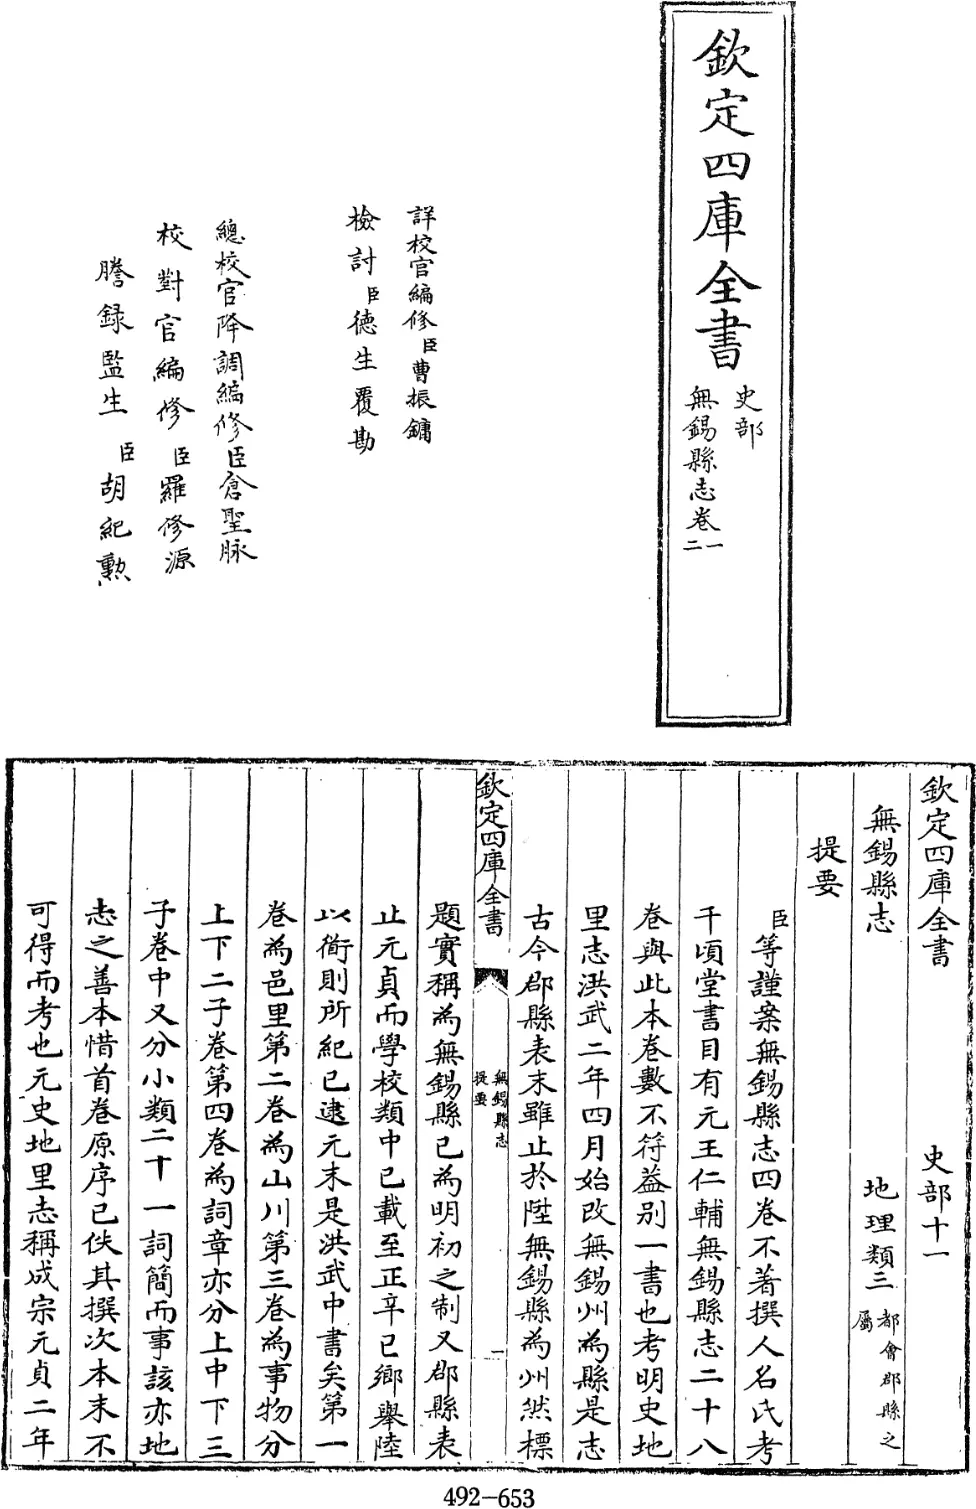 欽定四庫全書
史部
無錫縣志卷一
二
詳校官編修臣曹振鏞
檢討臣德生覆勘
總校官降調編修臣倉聖脉
校對官編修臣羅修源
謄錄監生臣胡紀勲
欽定四庫全書 史部十一
無錫縣志 地理類三都會郡縣之屬
提要
臣等謹案無錫縣志四卷不著撰人名氏考
千頃堂書目有元王仁輔無錫縣志二十八
卷與此本卷數不符葢别一書也考明史地
里志洪武二年四月始改無錫州為縣是志
古今郡縣表末雖止於陞無錫縣為州然標
欽定四庫全書
無錫縣志
提要
一
題實稱為無錫縣已為明初之制又郡縣表
止元貞而學校類中已載至正辛巳鄉舉陸
以衜則所紀已逮元末是洪武中書矣第一
卷為邑里第二卷為山川第三卷為事物分
上下二子卷第四卷為詞章亦分上中下三
子卷中又分小類二十一詞簡而事該亦地
志之善本惜首卷原序已佚其撰次本末不
可得而考也元史地里志稱成宗元貞二年
492-653